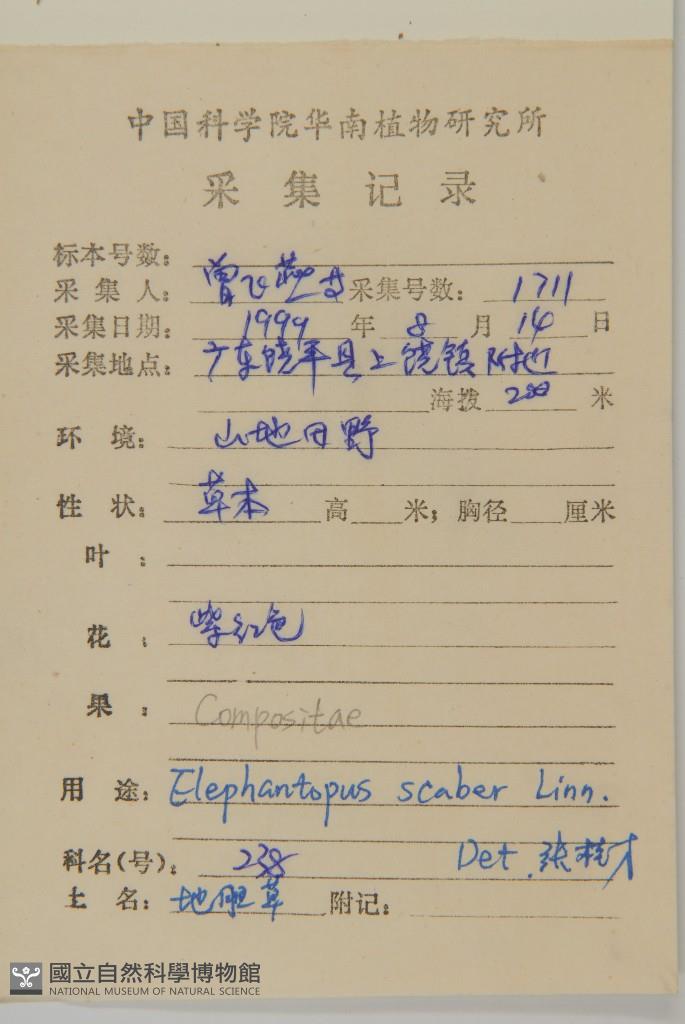 中国科学院华南植物研究所
采集记录
标本号数:
采集人: 曾飞燕等 采集号数: 1711
采集日期: 1999 年 8 月 14 日
采集地点: 广东饶平县上饶镇附近
海拨 200 米
环境: 山地田野
性状: 草本 高 米; 胸径 厘米
叶:
花: 紫红色
果: Compositae
用途: Elephantopus scaber Linn.
科名(号): 238 Det. 张桂才
土名: 地胆草 附记:
國立自然科學博物館
NATIONAL MUSEUM OF NATURAL SCIENCE